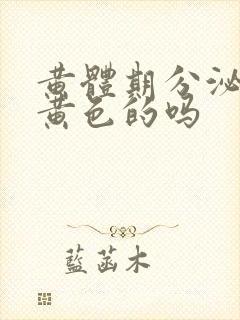 黄體期分泌
黄色的吗
藍菡木